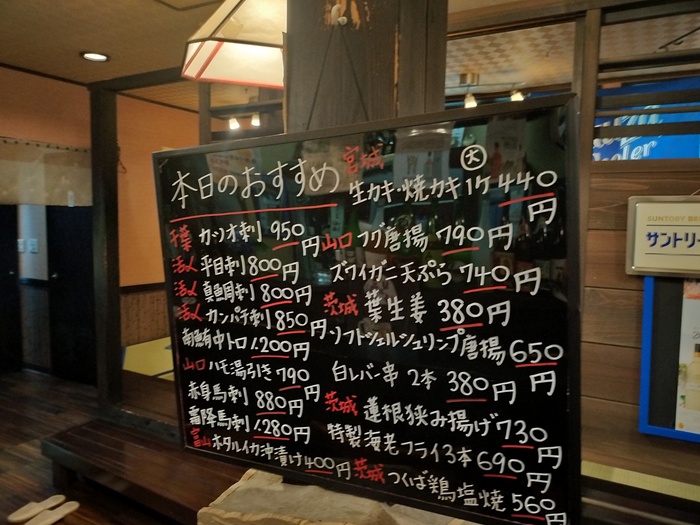 本日のおすすめ
千葉 カツオ刺 950円
活〆 平目刺 800円
活〆 真鯛刺 800円
活〆 カンパチ刺 850円
南鮪中トロ 1200円
山口 ハモ湯引き 790円
赤身馬刺 880円
霜降馬刺 1280円
富山 ホタルイカ沖漬け 400円
宮城 大 生カキ・焼カキ 1ケ 440円
山口 フグ唐揚 790円
ズワイガニ天ぷら 740円
茨城 葉生姜 380円
ソフトシェルシュリンプ唐揚 650円
白レバー串 2本 380円
茨城 蓮根挟み揚げ 730円
特製海老フライ3本 690円
茨城 つくば鶏塩焼 560円
SUNTORY BE
サントリー